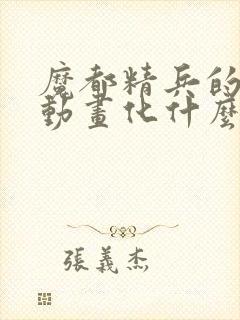 魔都精兵的
動畫化什麼
張義杰